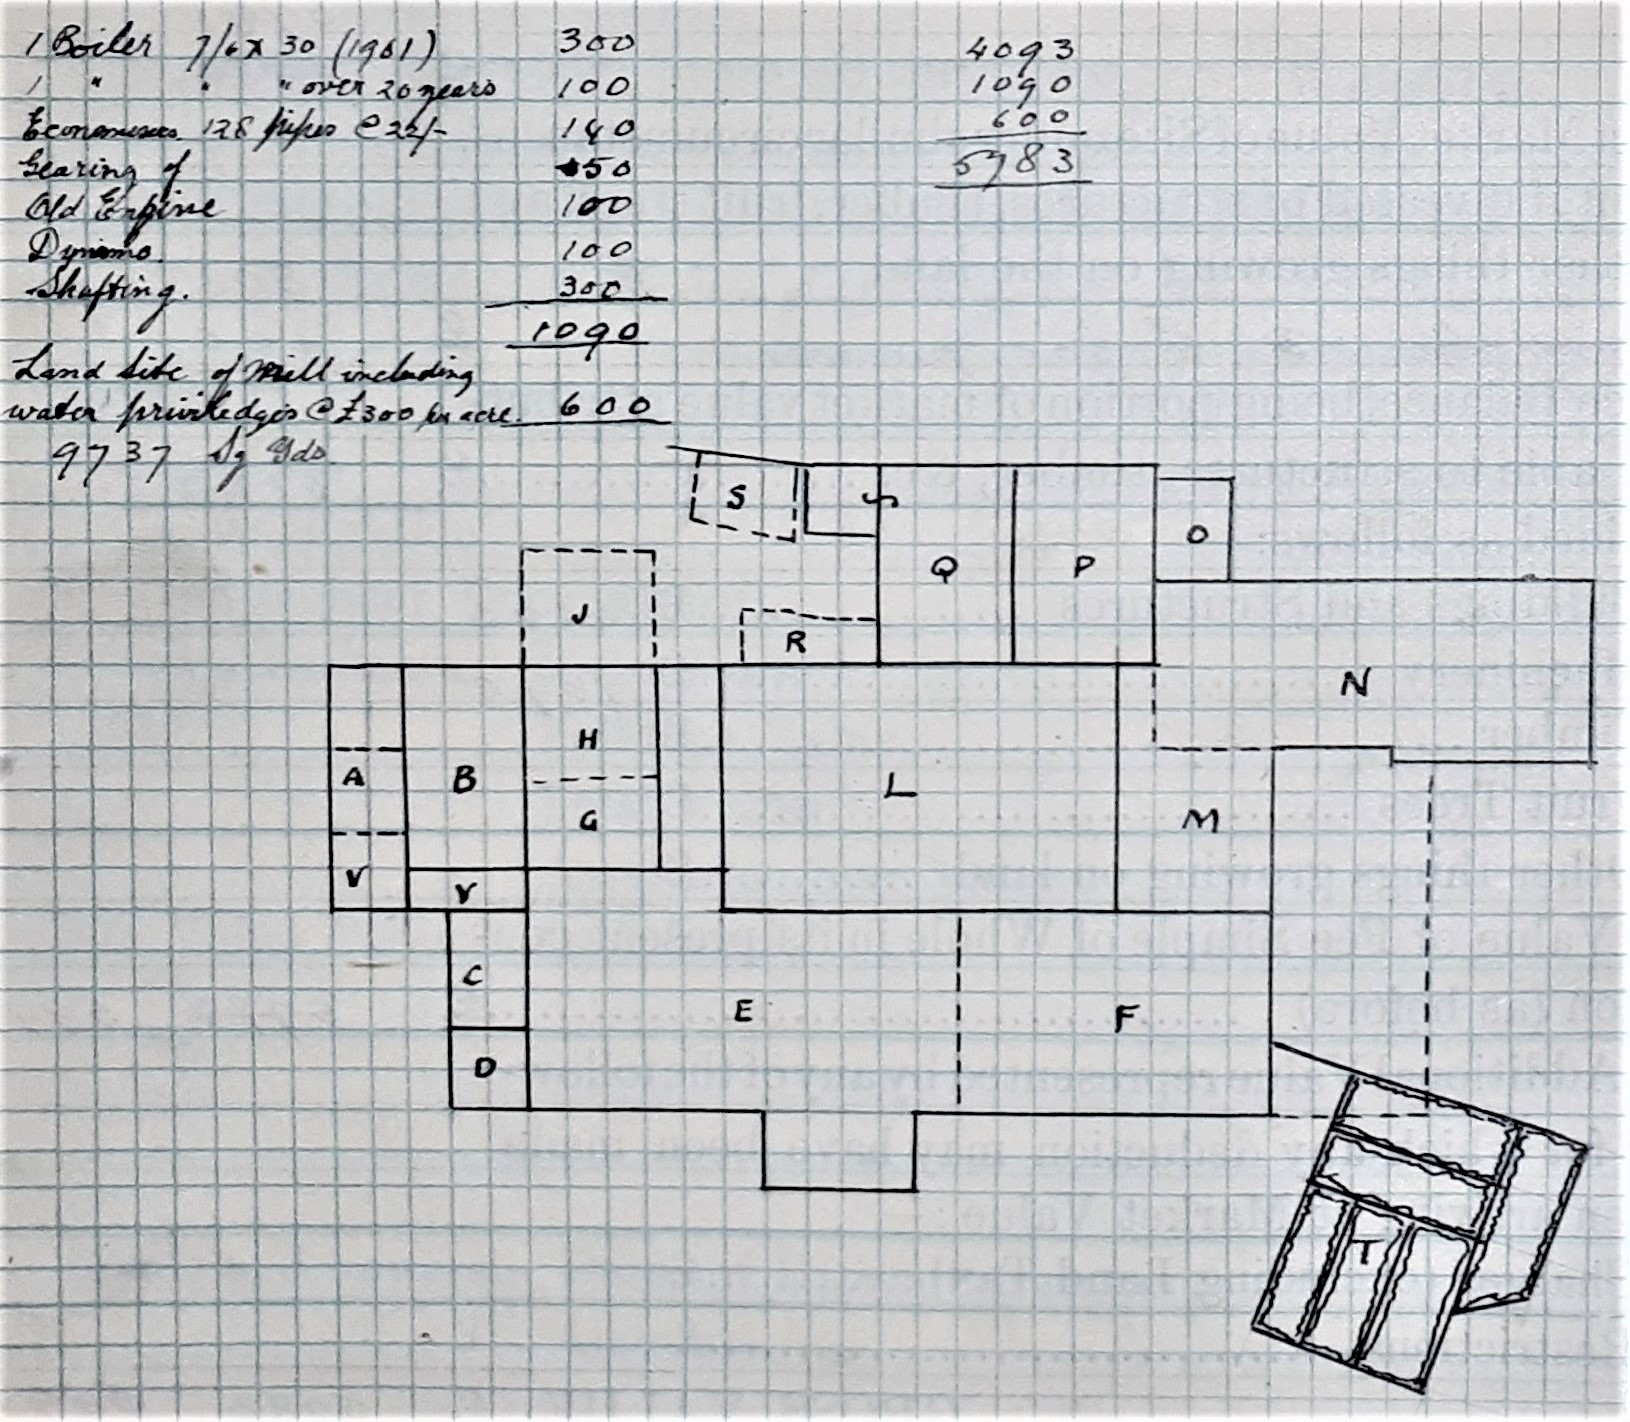 1 Boiler 7/6 x 30 (1901) 300
1 " " " over 20 years 100
Economisers 128 pipes @ 22/- 140
Gearing of 50
Old Engine 100
Dynamo. 100
Shafting. 300
1090
Land Site of Mill including
water priviledges @ £300 per acre. 600
9737 Sq Yds
4093
1090
600
5783
S
S
Q
P
O
J
R
N
H
A
B
G
L
M
V
V
C
E
F
D
T